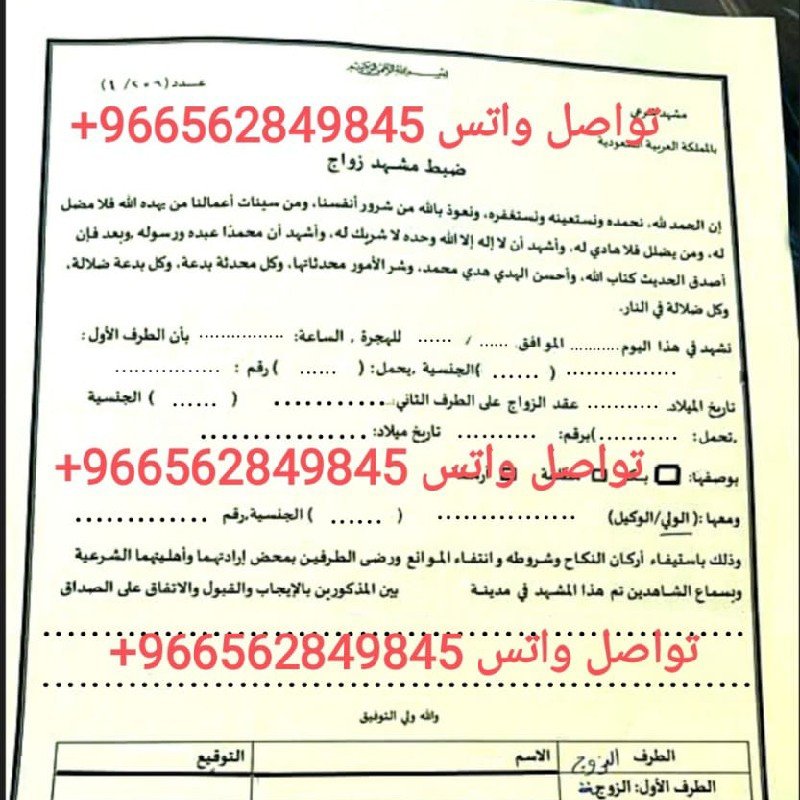 بسم الله الرحمن الرحيم
عــدد (٢٥٦/ ٤)
مشهد شرعي
تواصل واتس 966562849845+
بالمملكة العربية السعودية
ضبط مشهد زواج
إن الحمد لله، نحمده ونستعينه ونستغفره، ونعوذ بالله من شرور أنفسنا، ومن سيئات أعمالنا من يهده الله فلا مضل
له، ومن يضلل فلا هادي له، وأشهد أن لا إله إلا الله وحده لا شريك له، وأشهد أن محمدًا عبده ورسوله .وبعد فإن
أصدق الحديث كتاب الله، وأحسن الهدي هدي محمد، وشر الأمور محدثاتها، وكل محدثة بدعة، وكل بدعة ضلالة،
وكل ضلالة في النار.
نشهد في هذا اليوم .......... الموافق ...... / ...... للهجرة , الساعة: ............... بأن الطرف الأول:
.................. ( ...... )الجنسية .يحمل: ( ...... ) رقم : ..................
تاريخ الميلاد ............ عقد الزواج على الطرف الثاني:............... ( ...... ) الجنسية
.تحمل: ............)برقم: ............ تاريخ ميلاد: ..................
تواصل واتس 966562849845+
بوصفها: بكر مطلقة أرملة
ومعها :( الولي/الوكيل) .................. ( ...... ) الجنسية.رقم ...............
وذلك باستيفاء أركان النكاح وشروطه وانتفاء الموانع ورضى الطرفين بمحض إرادتهما وأهليتهما الشرعية
وبسماع الشاهدين تم هذا المشهد في مدينة بين المذكورين بالإيجاب والقبول والاتفاق على الصداق
تواصل واتس 966562849845+
والله ولي التوفيق
الطرف الزوج الاسم التوقيع
الطرف الأول: الزوج